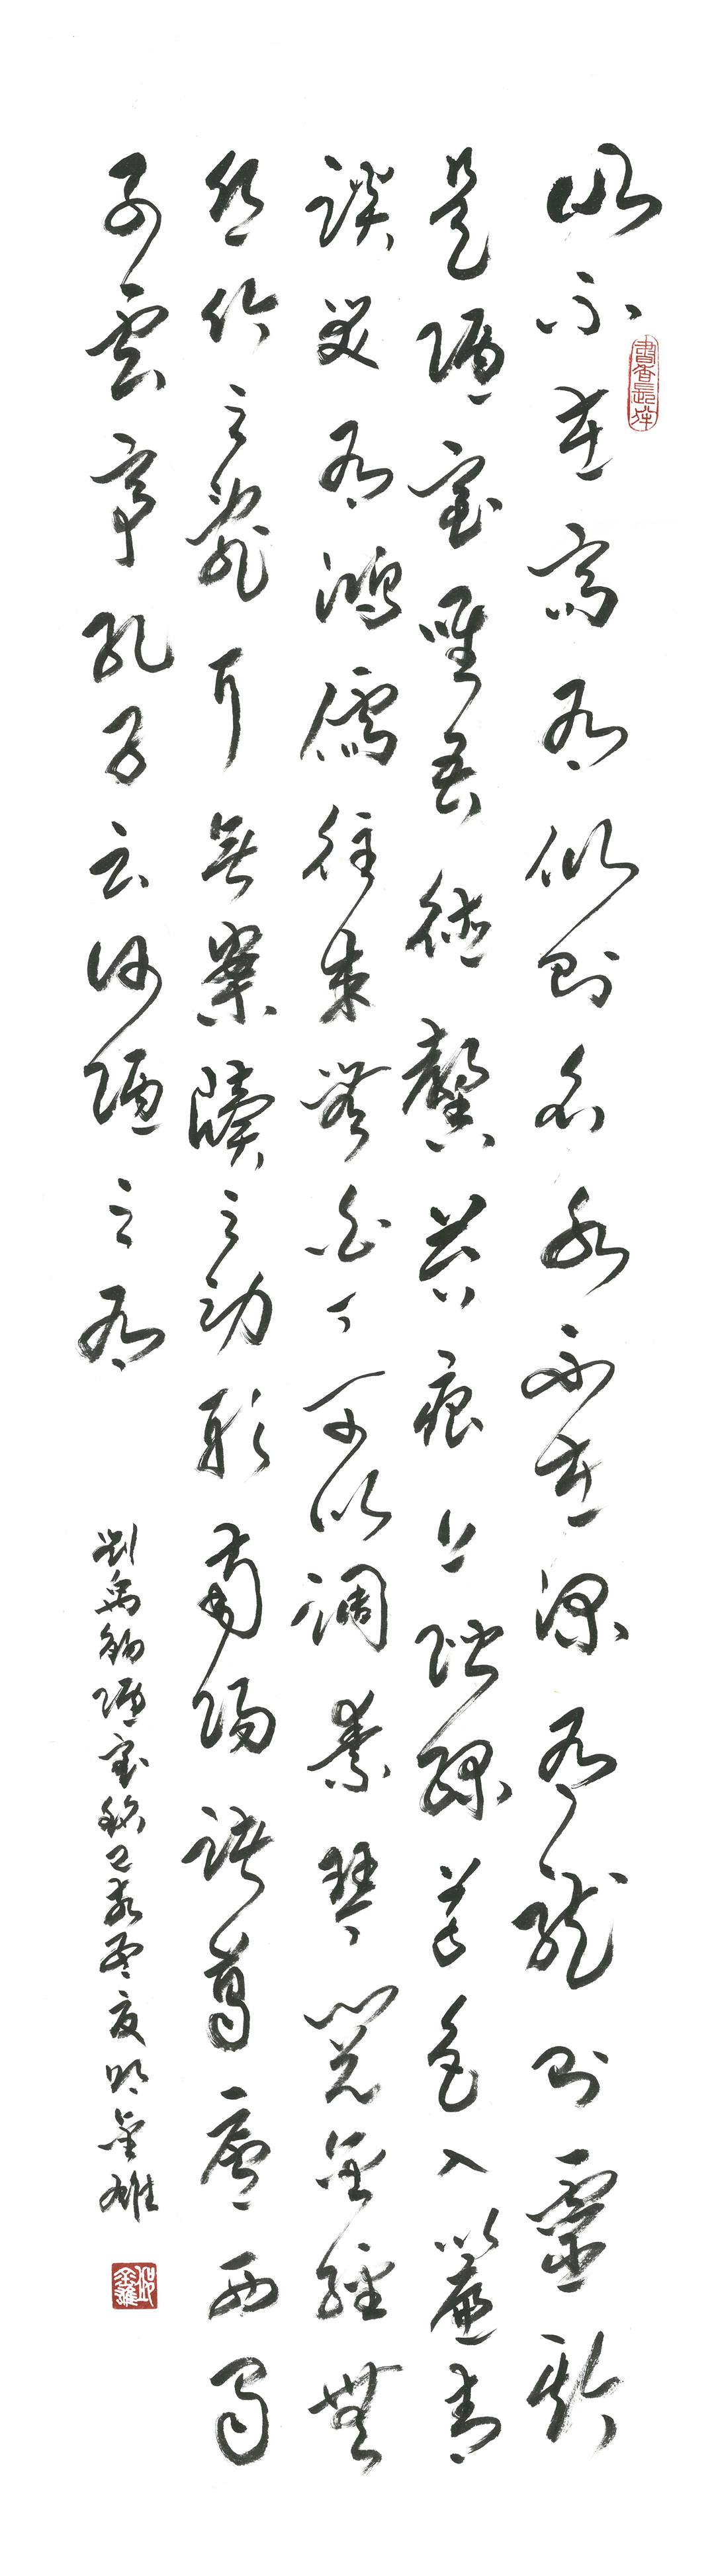 山不在高有仙則名水不在深有龍則靈斯
是陋室唯吾德馨苔痕上階綠草色入簾青
談笑有鴻儒往來無白丁可以調素琴閱金經無
絲竹之亂耳無案牘之勞形南陽諸葛廬西蜀
子雲亭孔子云何陋之有
劉禹錫陋室銘己亥孟夏邱金雄
書香長
邱金雄